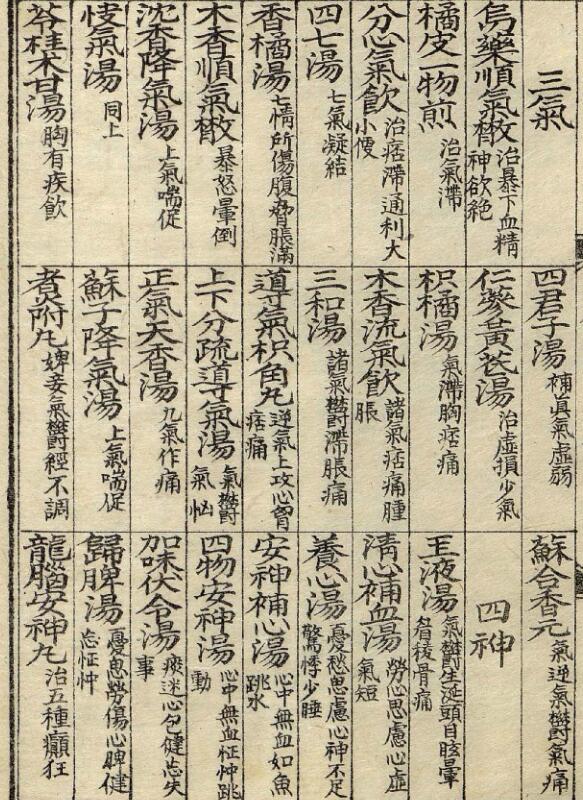 三氣
烏藥順氣散 治暴下血精神欲絶
橘皮一物煎 治氣滯
分心氣飮 治痞滯通利大小便
四七湯 七氣凝結
香橘湯 七情所傷腹脅脹滿
木香順氣散 暴怒暈倒
沈香降氣湯 上氣喘促
悛氣湯 同上
苓桂朮甘湯 胸有痰飮
四君子湯 補眞氣虛弱
仁蔘黃芪湯 治虛損少氣
枳橘湯 氣滯胸痞痛
木香流氣飮 諸氣痞痛腫脹
三和湯 諸氣鬱滯脹痛
導氣枳角丸 逆氣上攻心胷痞痛
上下分疏導氣湯 氣鬱氣惱
正氣天香湯 九氣作痛
蘇子降氣湯 上氣喘促
煮附丸 婢妾氣鬱經不調
蘇合香元 氣逆氣鬱氣痛
四神
玉液湯 氣鬱生涎頭目眩暈眉稜骨痛
淸心補血湯 勞心思慮心虛氣短
養心湯 憂愁思慮心神不足驚悸少睡
安神補心湯 心中無血如魚跳水
四物安神湯 心中無血怔忡跳動
加味伏令湯 痰迷心包健忘失事
歸脾湯 憂思勞傷心脾健忘怔忡
龍腦安神丸 治五種癲狂